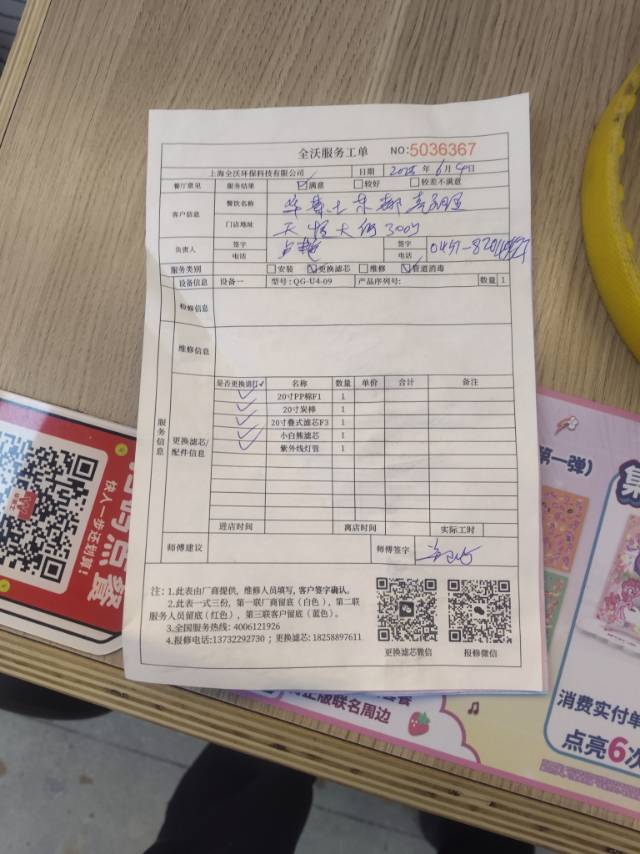 全沃服务工单 NO:5036367
上海全沃环保科技有限公司 日期 2025 年 6 月 4 日
餐厅意见 服务结果 ☑满意 □较好 □较差不满意
客户信息 餐饮名称 华莱士
门店地址 3007
负责人 签字 签字
电话 电话 0451-82
服务类别 □安装 ☑更换滤芯 □维修 ☑管道消毒
设备信息 设备一 型号:QG-U4-09 产品序列号: 数量 1
检修信息
维修信息
服务信息
更换滤芯/配件信息
是否更换请打✓ 名称 数量 单价 合计 备注
✓ 20寸PP棉F1 1
✓ 20寸炭棒 1
✓ 20寸叠式滤芯F3 1
✓ 小白熊滤芯 1
✓ 紫外线灯管 1
进店时间 离店时间 实际工时
师傅建议 师傅签字
注：1.此表由厂商提供，维修人员填写，客户签字确认。
2.此表一式三份，第一联厂商留底(白色)，第二联
服务人员留底(红色)，第三联客户留底(蓝色)。
3.全国服务热线: 4006121926
4.报修电话:13732292730；更换滤芯: 18258897611
更换滤芯微信 报修微信
点餐
快人一步还划算!
正版联名周边
第一弹)
第
消费实付单
点亮6次